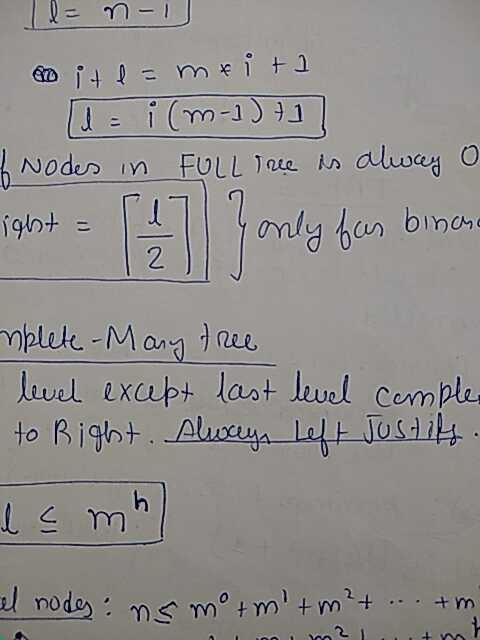 l = n - 1
i + l = m * i + 1
l = i (m-1) + 1
f Nodes in FULL Tree is alway O
ight = ⌈l/2⌉ } only for binar
mplete - Mary tree
level except last level comple
to Right. Always Left Justify.
l ≤ m^h
el nodes : n ≤ m^0 + m^1 + m^2 + ... + m